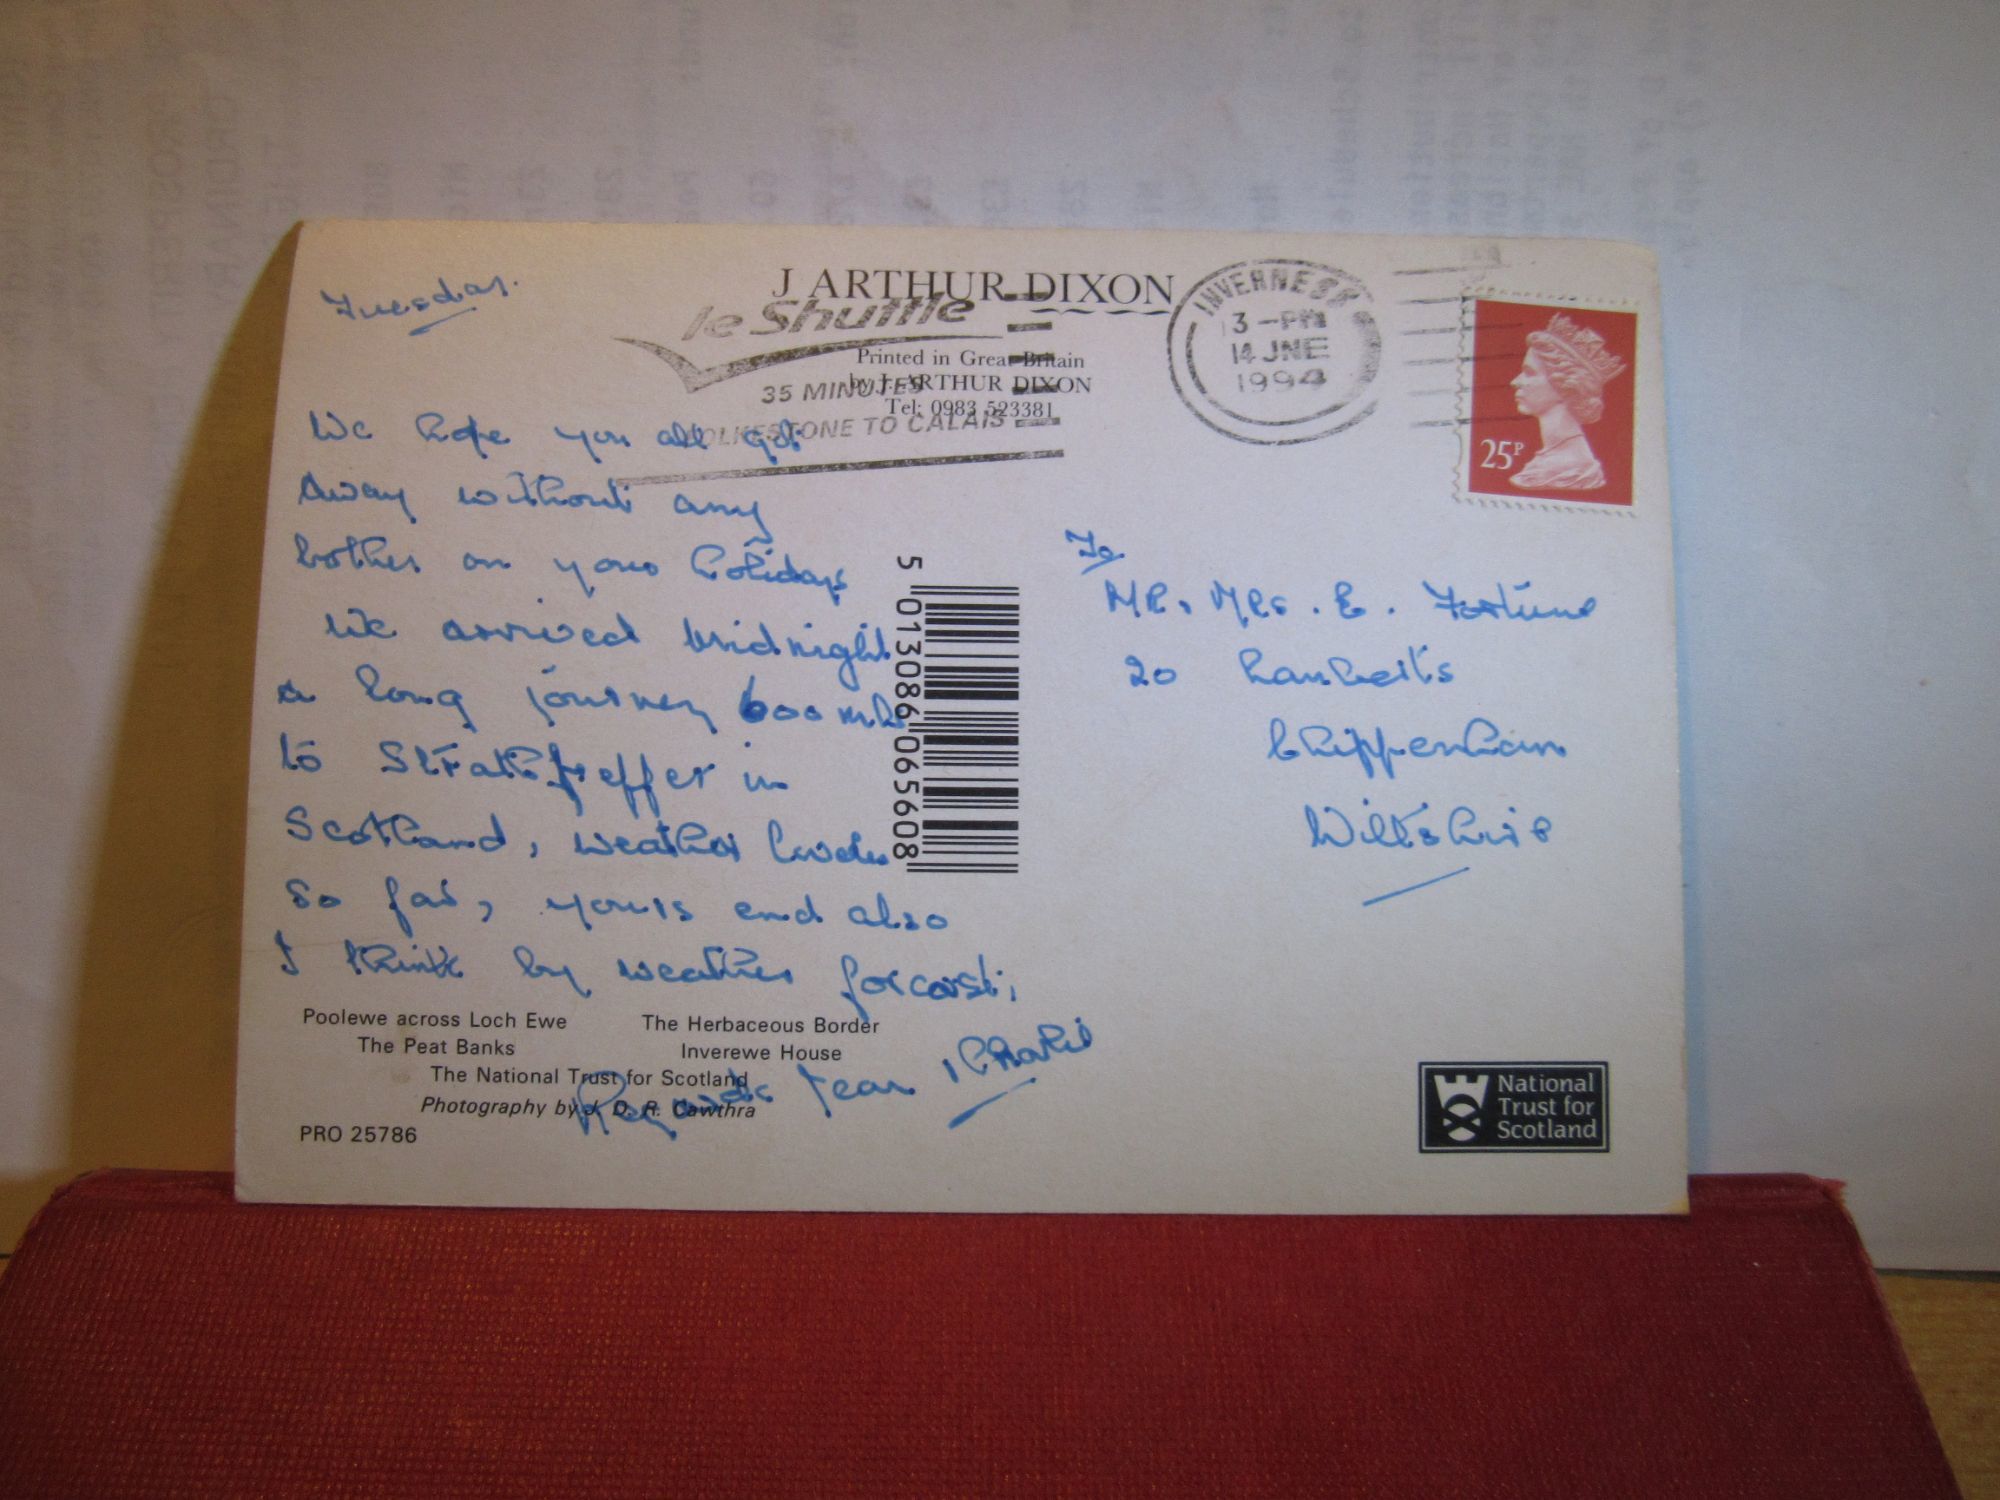 Tuesday.
J ARTHUR DIXON
le Shuttle
Printed in Great Britain
by J. ARTHUR DIXON
Tel: 0983 523381
35 MINUTES
FOLKESTONE TO CALAIS
INVERNESS
3 - PM
14 JNE
1994
25P
We hope you all got
away without any
bother on your holidays
We arrived midnight
a long journey 600 mls
to Strathpeffer in
Scotland, weather lovely
so far, yours and also
I think by weather forcast.
Regards Jean
To
MR. MRS. E. Fortune
20
Chippenham
Wiltshire
5 013086 065608
Poolewe across Loch Ewe
The Herbaceous Border
The Peat Banks
Inverewe House
The National Trust for Scotland
Photography by J. D. R. Cawthra
PRO 25786
National
Trust for
Scotland